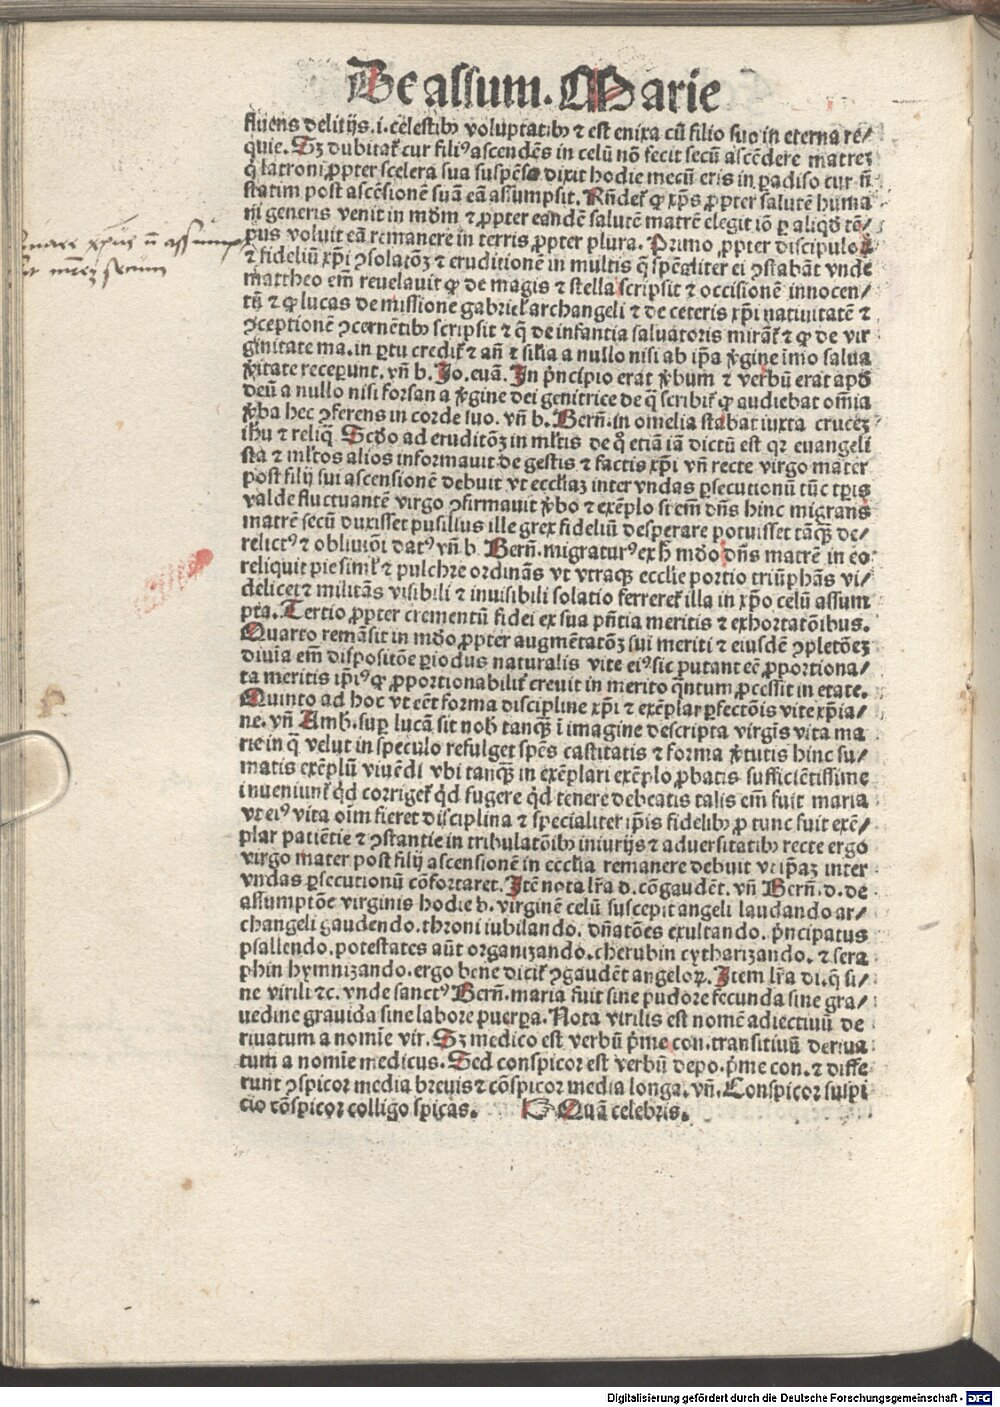 De assum. Marie
fluens delitijs .i. celestibꝰ voluptatibꝰ ⁊ est enixa cū filio suo in eterna re/
quie. Sꝫ dubitat̉ cur filiꝰ ascendēs in celū nō fecit secū ascēdere matreꝫ
q̇ latroni ꝓpter scelera sua suspēso dixit hodie mecū eris in ꝑadiso cur nō
statim post ascēsionē suā eā assumpsit. Rn̄det̉ ꝙ xp̄s ꝓpter salutē huma
ni generis venit in mūdm ⁊ ꝓpter eandē salutē matrē elegit iō ꝑ aliqd tē/
pus voluit eā remanere in terris ꝓpter plura. Primo ꝓpter discipuloꝝ
⁊ fideliū xp̄i ꝯsolatōꝫ ⁊ eruditionē in multis q̄ spēcialiter ei ꝯstabāt vnde
mattheo em̄ reuelauit ꝙ de magis ⁊ stella scripsit ⁊ occisionē innocen/
tū ⁊ ꝙ lucas de missione gabriel̉ archangeli ⁊ de ceteris xp̄i natiuitatē ⁊
ꝯceptionē ꝯcernētibꝰ scripsit ⁊ q̄ de infantia saluatoris mirat̉ ⁊ ꝙ de vir
ginitate ma. in ꝑtu credit̉ ⁊ an̄ ⁊ silia a nullo nisi ab ip̄a v̉gine imo salua
v̉itate receperunt. vn̄ b. Jo. euā. In p̉ncipio erat v̉bum ⁊ verbū erat apd
deū a nullo nisi forsan a v̉gine dei genitrice de q̄ scribit̉ ꝙ audiebat om̄ia
v̉ba hec ꝯferens in corde suo. vn̄ b. Bern̄. in omelia stabat iuxta cruceꝫ
ihū ⁊ reliq̄. Scdo ad eruditōꝫ in ml̉tis de q̇ etiā iā dictū est qꝛ euangeli
sta ⁊ ml̉tos alios informauit de gestis ⁊ factis xp̄i vn̄ recte virgo mater
post filij sui ascensionē debuit vt eccliaꝫ inter vndas ꝑsecutionū tūc tꝑis
valde fluctuantē virgo ꝯfirmauit v̉bo ⁊ exēplo si em̄ dn̄s hinc migrans
matrē secū duxisset pusillus ille grex fideliū desperare potuisset tāꝙ̄ de/
relictꝰ ⁊ obliuiōi datꝰ vn̄ b. Bern̄. migraturꝰ ex h̉ mūdo dn̄s matrē in eo
reliquit pie simil̉ ⁊ pulchre ordinās vt vtraqꝫ ecclie portio triūphās vi/
delicet ⁊ militās visibili ⁊ inuisibili solatio ferreret̉ illa in xp̄o celū assum
pta. Tertio ꝓpter crementū fidei ex sua pn̄tia meritis ⁊ exhortatōibus.
Quarto remāsit in mūdo ꝓpter augmētatōꝫ sui meriti ⁊ eiusdē ꝯpletōeꝫ
diuina em̄ dispositōe periodus naturalis vite eiꝰ sic putant eē ꝓportiona/
ta meritis ip̄iꝰ ꝙ ꝓportionabilit̉ creuit in merito q̄ntum ꝓcessit in etate.
Quinto ad hoc vt eēt forma discipline xp̄i ⁊ exēplar ꝑfectōis vite xp̄ia/
ne. vn̄ Amb. suꝑ lucā sit nob̉ tanꝙ̄ ī imagine descripta virgīs vita ma
rie in q̄ velut in speculo refulget spēs castitatis ⁊ forma v̉tutis hinc su/
matis exēplū viuēdi vbi tanꝙ̄ in exēplari exēplo ꝓbatis sufficiētissime
inueniunt̉ q̇d corriget̉ q̇d fugere q̇d tenere debeatis talis em̄ fuit maria
vt eiꝰ vita oīm fieret disciplina ⁊ specialiter ip̄is fidelibꝰ ꝓ tunc fuit exē/
plar patiētie ⁊ ꝯstantie in tribulatōibꝰ iniurijs ⁊ aduersitatibꝰ recte ergo
virgo mater post filij ascensionē in ecclia remanere debuit vt ip̄aꝫ inter
vndas ꝑsecutionū cōfortaret. Itē nota lr̄a d. cōgaudēt. vn̄ Bern̄. d. de
assumptōe virginis hodie b. virginē celū suscepit angeli laudando ar/
changeli gaudendo. throni iubilando. dn̄atōes exultando. p̉ncipatus
psallendo. potestates aūt organizando. cherubin cytharizando. ⁊ sera
phin hymnizando. ergo bene dicit̉ ꝯgaudēt angeloꝝ. Item lr̄a di. q̄ si/
ne virili ⁊c. vnde sanctꝰ Bern̄. maria fuit sine pudore fecunda sine gra/
uedine grauida sine labore puerꝑa. Nota virilis est nomē adiectiuū de
riuatum a nomīe vir. Sꝫ medico est verbū p̉me con. transitiuū deriua
tum a nomīe medicus. Sed conspicor est verbū depo. p̉me con. ⁊ diffe
runt ꝯspicor media breuis ⁊ cōspicor media longa. vn̄. Conspicor suspi
cio cōspicor colligo spicas. ☞ Quā celebris.
quare xpūs n̄ assump
sit mr̄eꝫ secum
Digitalisierung gefördert durch die Deutsche Forschungsgemeinschaft - DFG